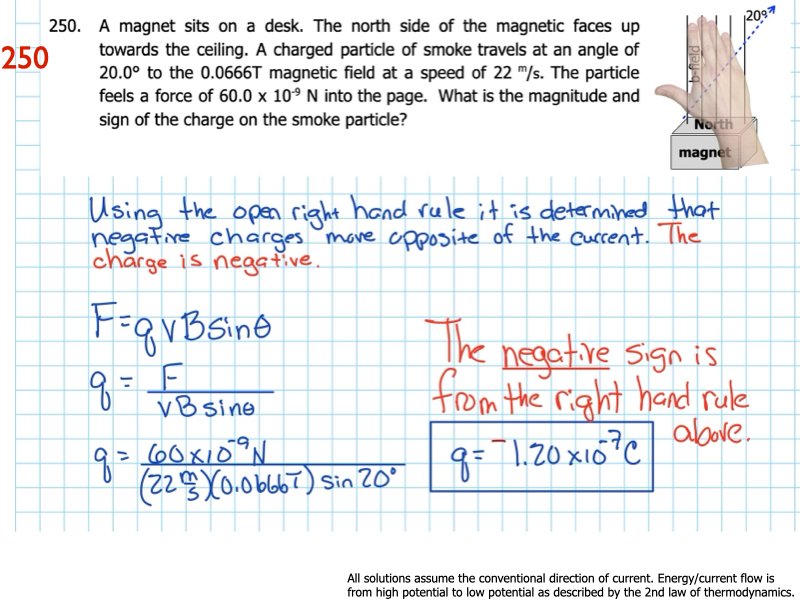 250. A magnet sits on a desk. The north side of the magnetic faces up
250
towards the ceiling. A charged particle of smoke travels at an angle of
20.0º to the 0.0666T magnetic field at a speed of 22 ᵐ/s. The particle
feels a force of 60.0 x 10⁻⁹ N into the page. What is the magnitude and
sign of the charge on the smoke particle?
20º
b-field
North
magnet
Using the open right hand rule it is determined that
negative charges move opposite of the current. The
charge is negative.
F=qvBsinθ
q = F
vBsinθ
q = 60x10⁻⁹N
(22 m/s)(0.0666T) sin 20°
The negative sign is
from the right hand rule
above.
q= -1.20x10⁻⁷C
All solutions assume the conventional direction of current. Energy/current flow is
from high potential to low potential as described by the 2nd law of thermodynamics.